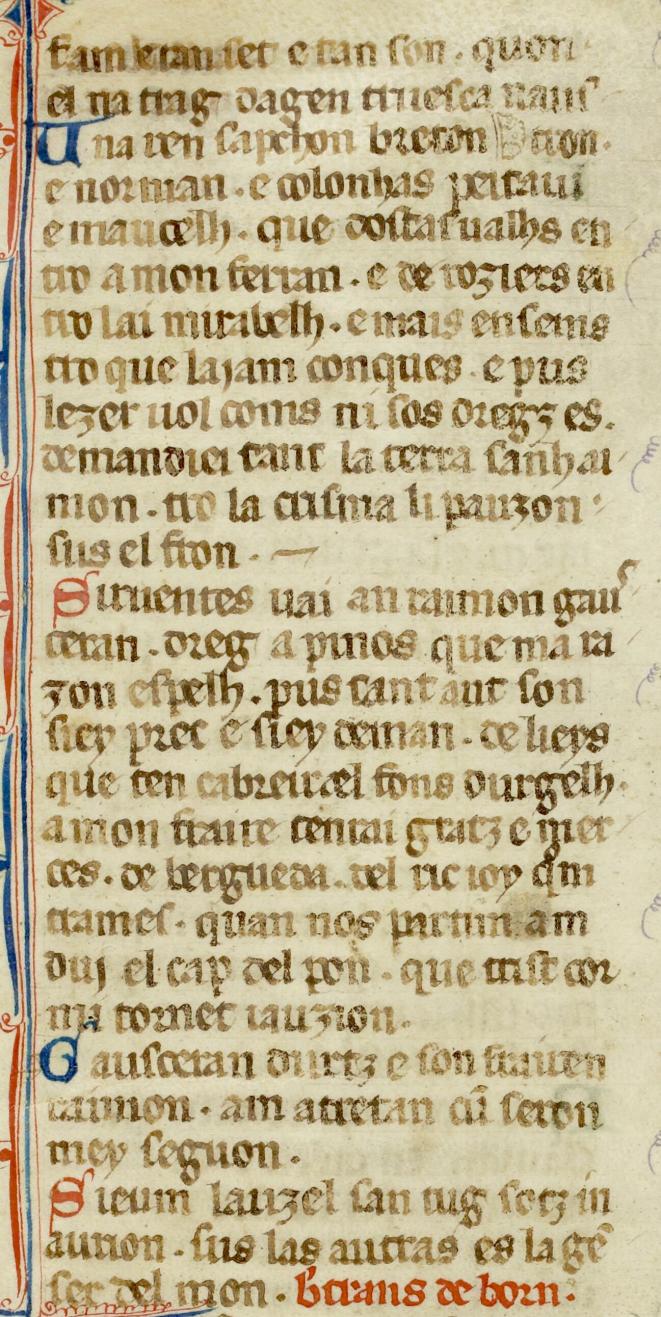 fam e tan set e tan son . quon
el na trag dagen truesca naus
Una ren sapchon breton
e norman . e colonhas peitaui
e maucelh . que dostasualhs en
tro a mon ferran . e de roziers en
tro lai mirabelh . e mais ensems
tro que lajam conques . e pus
lezer uol coms ni sos dregz es .
demandiei tant la terra sanhai
mon . tro la crisma li pauzon
sus el fron .
Siruentes uai an raimon gaus
ceran . dreg a pinos que ma ra
zon espelh . pus tant aut son
siey prec e siey deman . de lieys
que ten cabreira el fons durgelh .
a mon fraire tenrai gratz e mer
ces . de bergueda . del ric ioy qm
trames . quan nos partim am
duj el cap del pon . que trist cor
mi tornet iauzion .
Gausceran durtz e son fraire n
raimon . am atretan cū seron
mey seguon .
Sieum lauzel san tug sotz in
aurion . sus las autras es la gē
ser del mon . b̄trans de born .